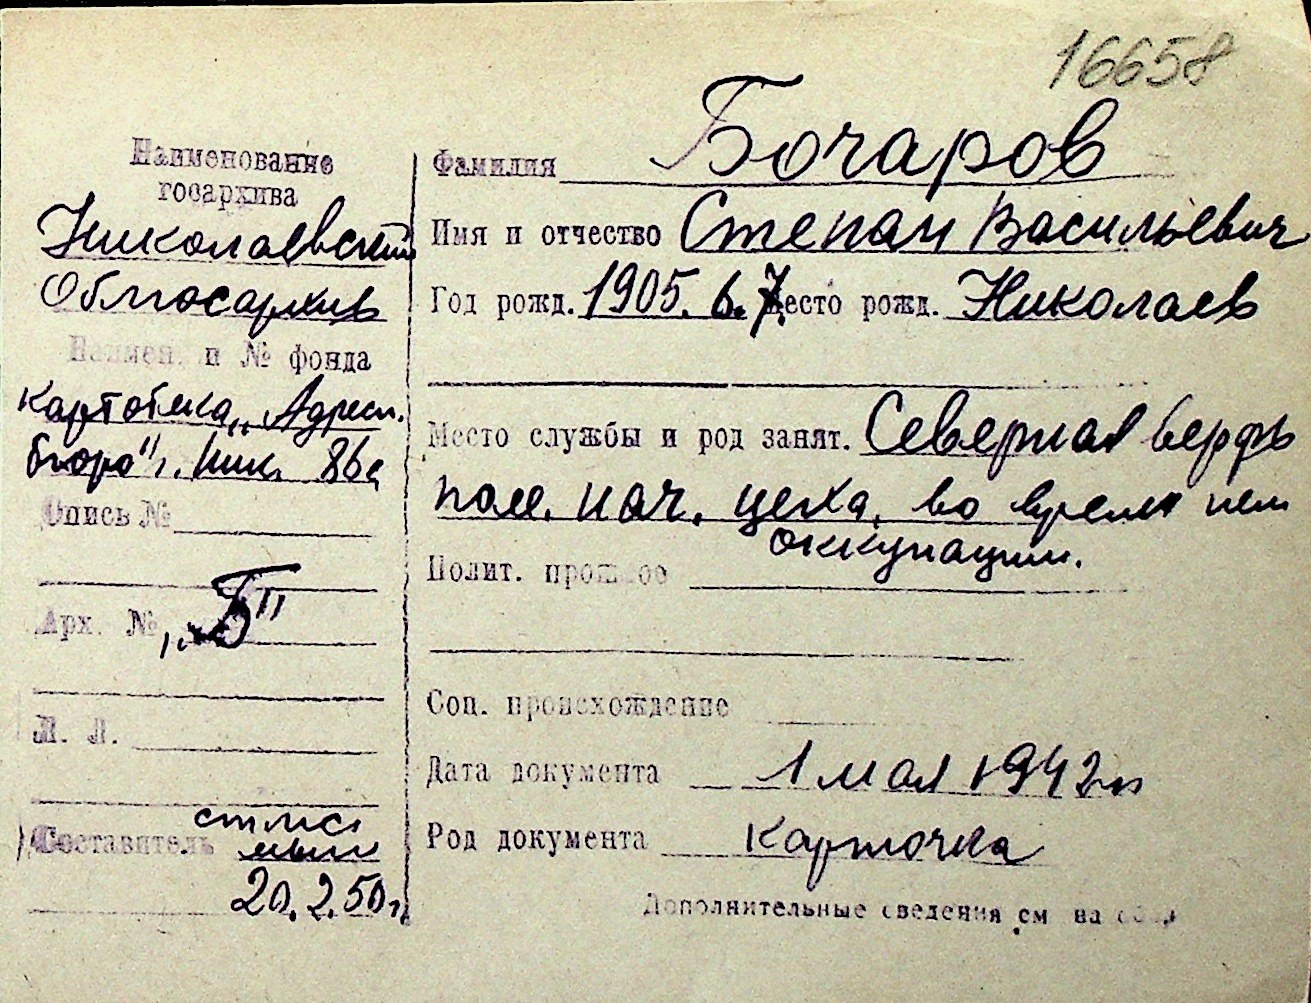 16658
Наименование
госархива
Николаевский
Облгосархив
Наимен. и № фонда
картотека „Адресн.
бюро" г. Ник. 86
Опись №
Арх. № „Б"
Л. Л.
Составитель
20.2.50г.
Фамилия Бочаров
Имя и отчество Степан Васильевич
Год рожд. 1905. 6. 7. Место рожд. Николаев
Место службы и род занят. Северная верфь
пом. нач. цеха, во время нем
оккупации.
Полит. прошлое
Соц. происхождение
Дата документа 1 мая 1942г
Род документа карточка
Дополнительные сведения см на